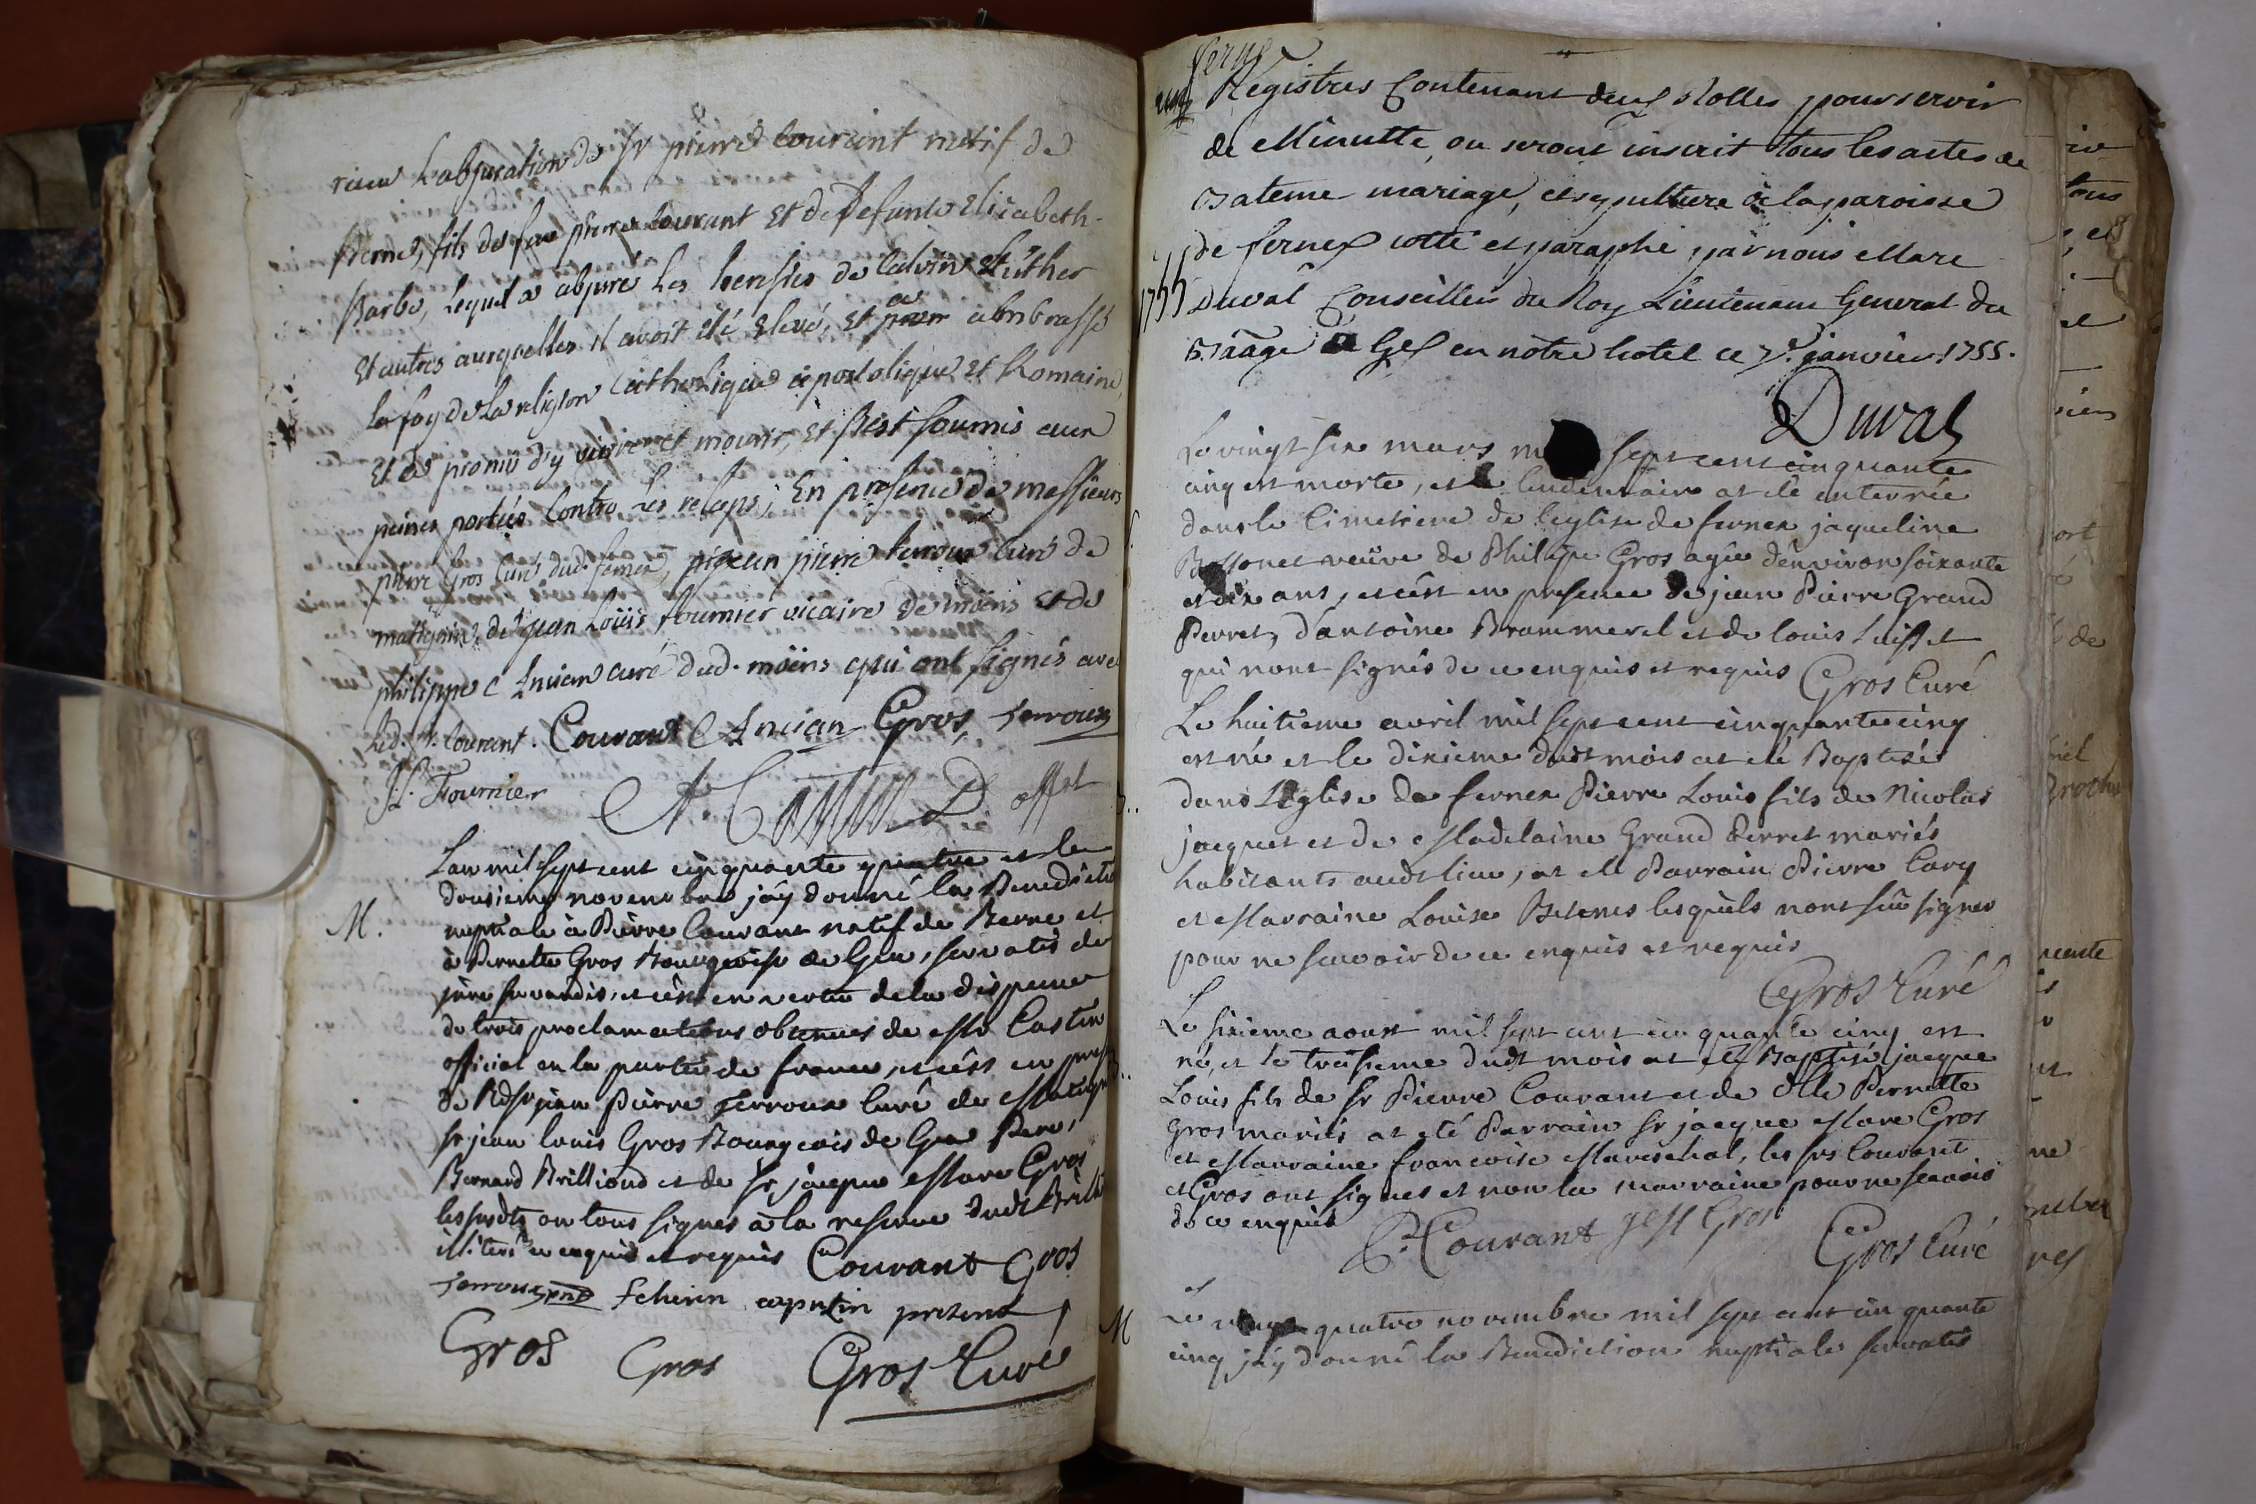 l'abjuration de Sr pierre Courant natif de
Berne, fils de feu pierre Courant et de Defunte Elizabeth
Barbe, lequel a abjuré les heresies de Calvin Luther
et autres auxquelles il avoit été elevé, et a ambrassé
la foy de la religion Catholique apostolique et Romaine,
et a promis d'y vivre et mourir, et s'est soumis aux
peines portées contre les relaps; En presence de messieurs
pierre Gros Curé dud. fernex, jean pierre Ferroux Curé de
de jean Loüis fournier vicaire de möens et de
philippe Ancian curé dud. möens qui ont signés avec
led. Sr. Courant. Courant Ancian Gros, Ferroux
J L. Fournier
L'an mil sept cent cinquante quatre et le
novembre j'ay donné la Benedictn
nuptiale à Pierre Courant natif de Berne et
à Pernette Gros Bourgeoise de Gex, servatis de
jure servandis, et c'est en vertu de la dispense
de trois proclamations obtenues de Mr Castin
official en la partie de france, et c'est en
de Rd Sr jean Pierre Ferroux Curé de
Sr jean louis Gros Bourgeois de Gex Pere,
Bernard Brilliond et de Sr jacque Marc Gros
les susdts on tous signes à la reserve dudt
illiteré enquis et requis Courant Gros
Ferroux capucin present
Gros Gros Gros Curé
M.
fernex
Registres Contenant deux Rolles pour servir
de Minutte, ou seront inscrit tous les actes de
Bateme mariage, et sepulture de la paroisse
de fernex cotté et paraphé par nous Marc
1755
Duval Conseiller du Roy Lieutenant General du
Baage de Gex en nôtre hotel ce 7e. janvier 1755.
Duval
Le vingt six mars sept cent cinquante
cinq est morte, et le lendemain at été enterrée
dans le Cimetiere de l'eglise de fernex jaqueline
veuve de Philipe Gros agée d'environ soixante
et dix ans, et c'est en presence de jean Pierre Grand
Perret, d'antoine Brammerel et de louis
qui n'ont signés de ce enquis et requis Gros Curé
Le huitieme avril mil sept cent cinquante cinq
est né et le dixieme dudt mois at été Baptisé
dans L'Eglise de fernex Pierre Louis fils de Nicolas
jacquet et de Madelaine Grand Perret mariés
habitants audt lieu, at été Parrain Pierre
et Marraine Louise lesquels n'ont sçu signer
pour ne scavoir de ce enquis et requis
Gros Curé
Le sixieme aoust mil sept cent cinquante cinq est
né, et le treisieme dudt mois at été Baptisé jacque
Louis fils de Sr Pierre Courant et de Dlle Pernette
Gros mariés at été Parrain Sr jacque Marc Gros
et Marraine francoise Mareschal, les srs Courant
et Gros ont signes et non la marraine pour ne scavoir
de ce enquis
P. Courant Gros Gros Curé
M
Le vingt quatre novembre mil sept cent cin quante
cinq j'ay donné la Benediction nuptiale servatis